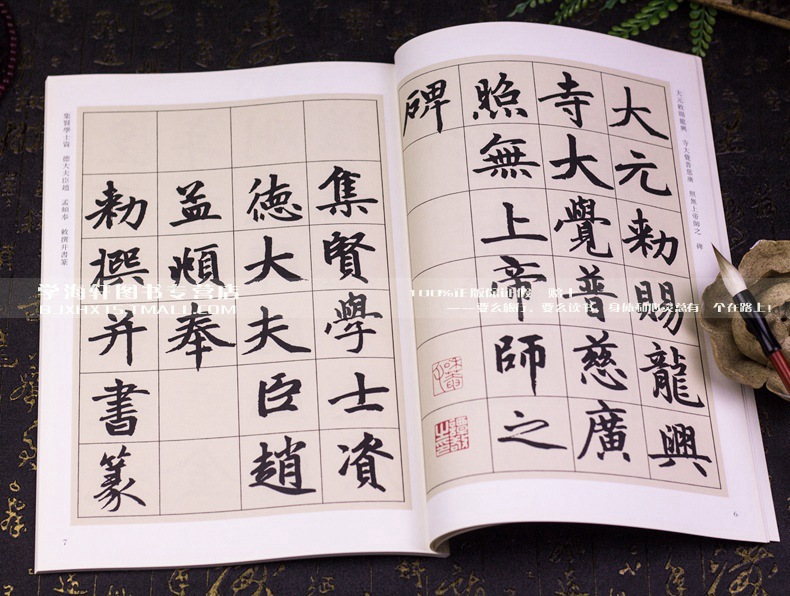 大元敕賜龍興　寺大覺普慈廣　照無上帝師之　碑
大元勅賜龍興
寺大覺普慈廣
照無上帝師之
碑
6
集賢學士資
德大夫臣趙
孟頫奉
勅撰并書篆
集賢學士資　德大夫臣趙　孟頫奉　敕撰并書篆
7
学海轩图书专营店
BJXHXTS.TMALL.COM
100%正版
——要么旅行，要么读书，身体和心灵总有 个在路上！